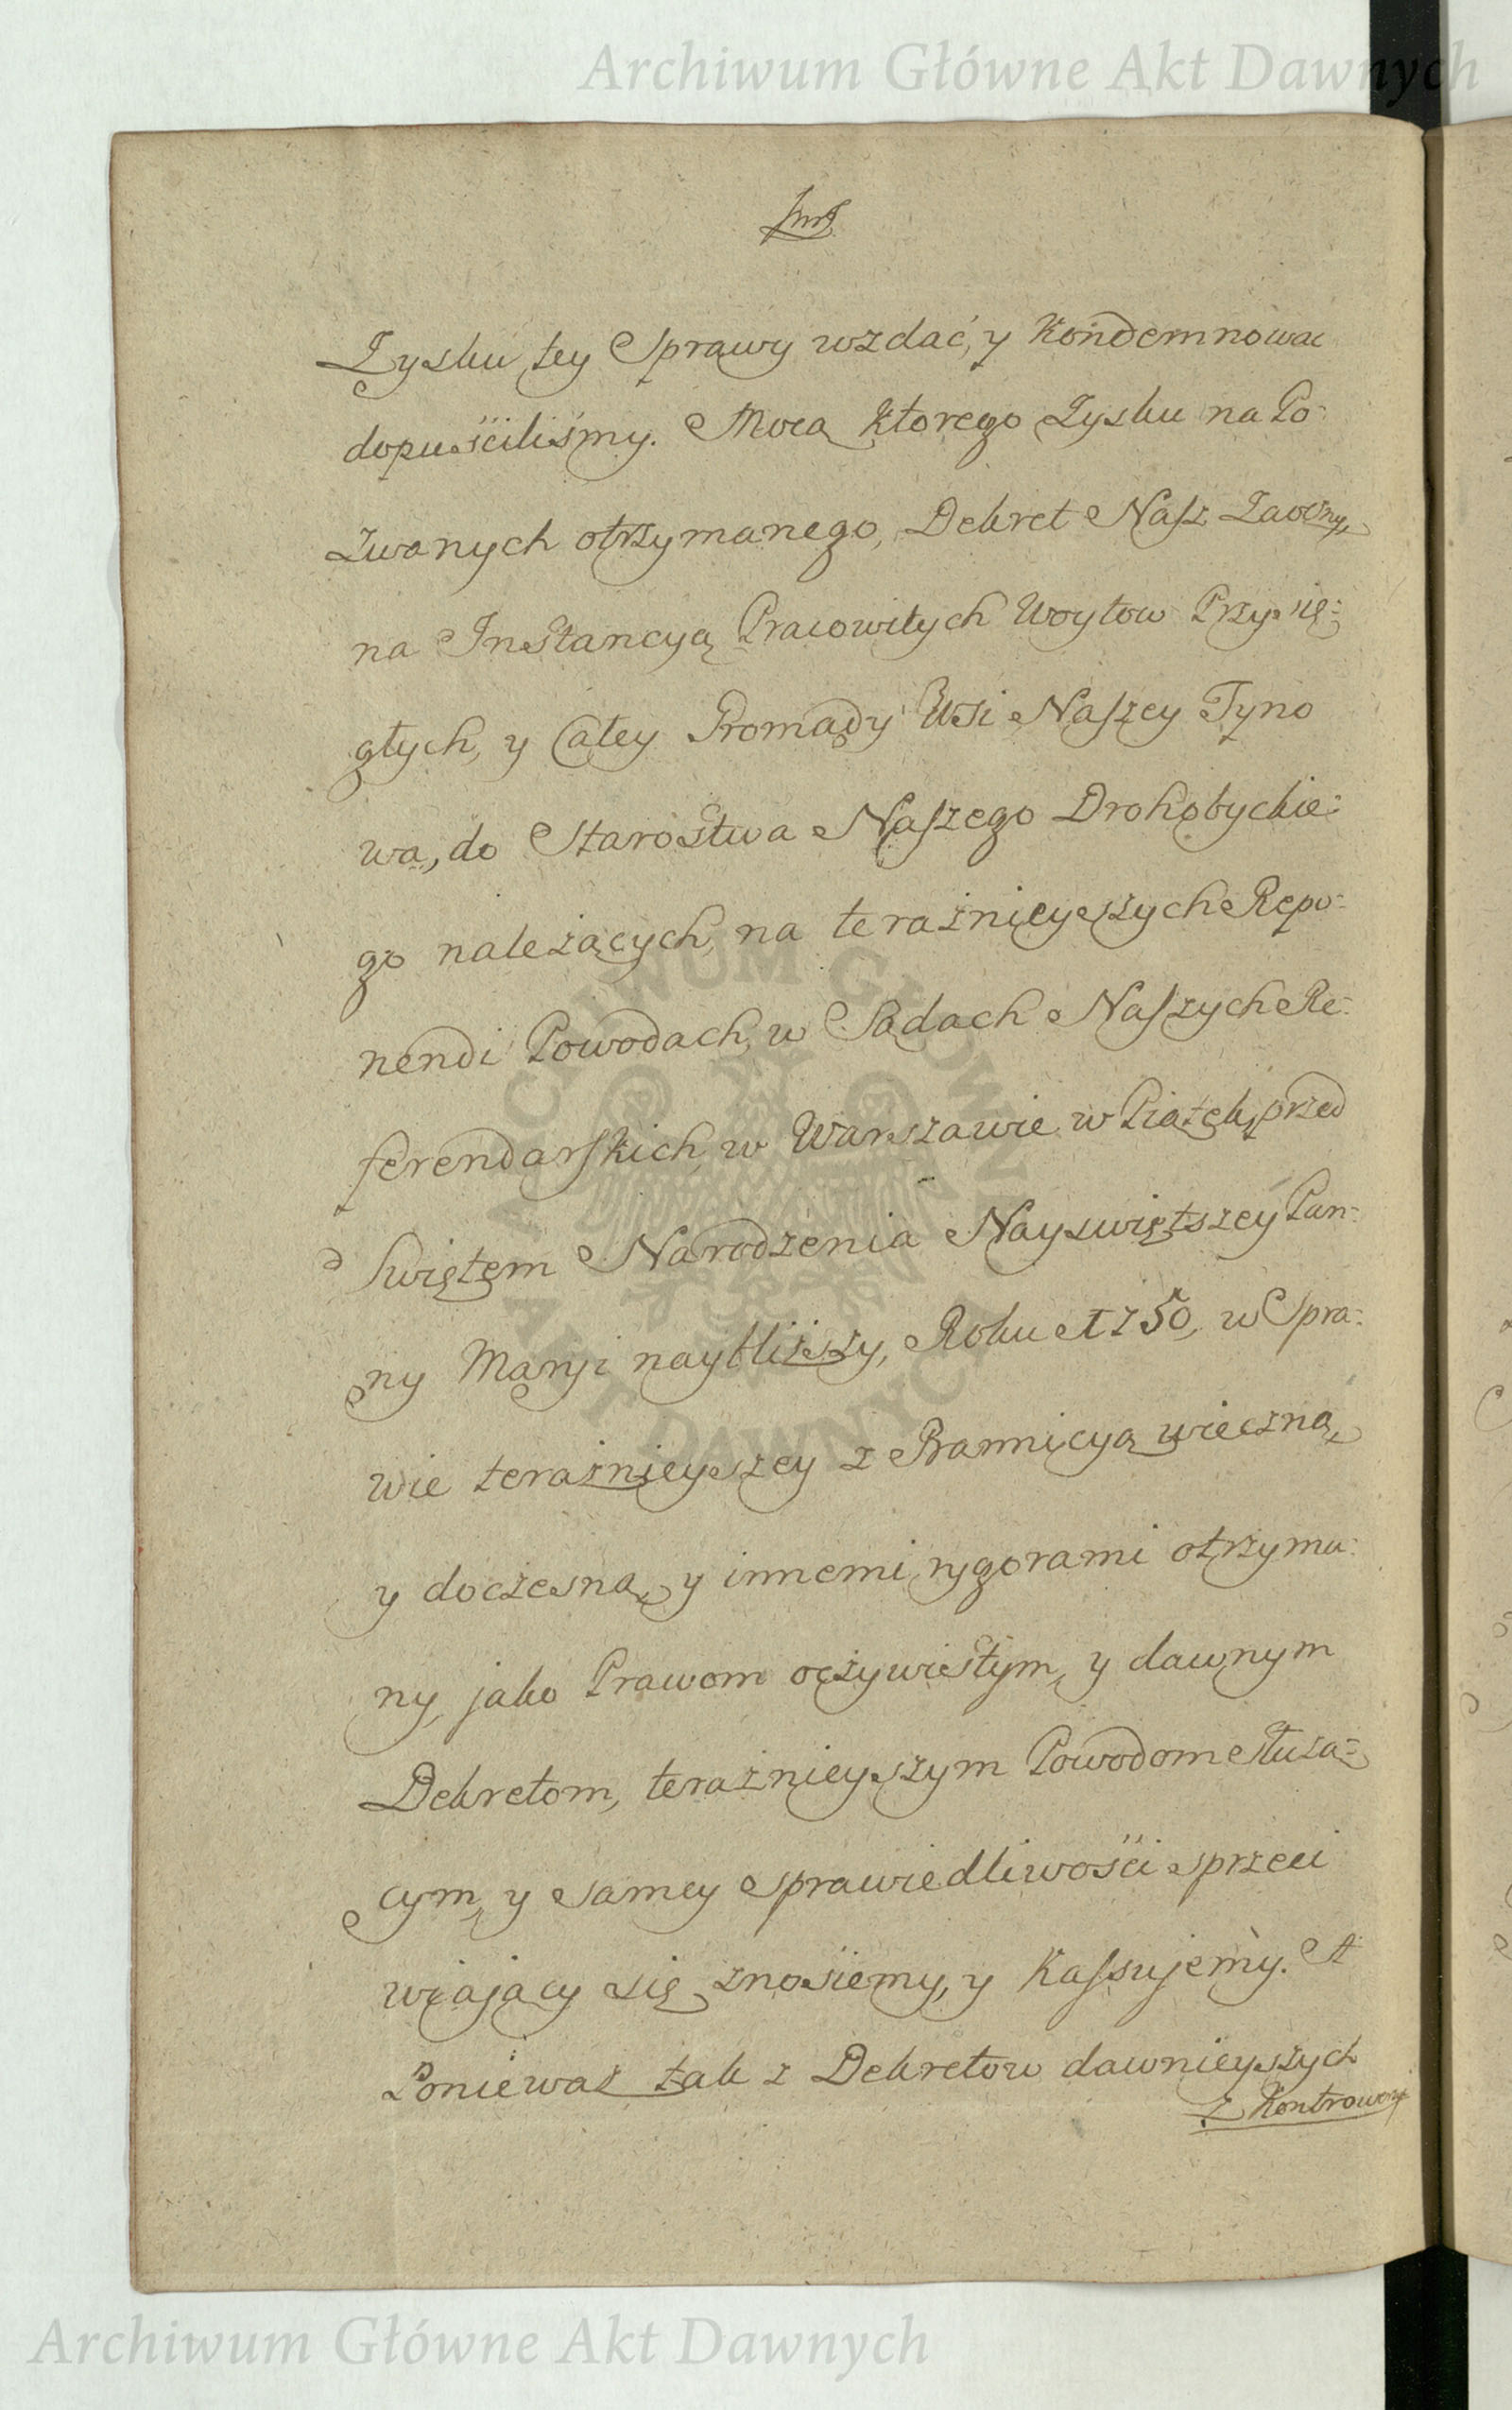 Archiwum Główne Akt Dawnych
Zysku tey Sprawy wzdać, y Kondemnowac
dopuściliśmy. Mocą Ktorego Zysku na Po-
zwanych otrzymanego, Dekret Nasz Zaoczny,
na Instancyą Pracowitych Woytow Przysię-
głych, y Całey Gromady Wsi Naszey Tyno
wa, do Starostwa Naszego Drohobyckie-
go należących, na teraźnieyszych Repo-
nendi Powodach, w Sądach Naszych Re-
ferendarskich, w Warszawie w Piątek, przed
Swiętem Narodzenia Nayswiętszey Pan-
ny Maryi naybliższy, Roku 1750, w Spra-
wie teraźnieyszey z Bannicyą wieczną,
y doczesną, y innemi rygorami otrzyma-
ny, jako Prawom oczywistym, y dawnym
Dekretom, teraźnieyszym Powodom służą-
cym, y samey sprawiedliwości sprzeci
wiający się, znosiemy, y Kassujemy. A
Ponieważ tak z Dekretow dawnieyszych
z Kontrower
ARCHIWUM GŁÓWNE AKT DAWNYCH
Archiwum Główne Akt Dawnych